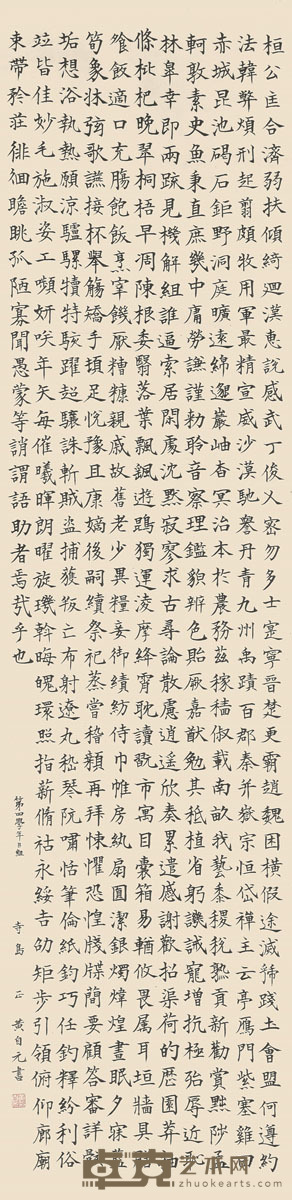 桓公匡合濟弱扶傾綺迴漢惠說感武丁俊乂密勿多士寔寧晉楚更霸趙魏困橫假途滅虢踐土會盟何遵約
法韓弊煩刑起翦頗牧用軍最精宣威沙漠馳譽丹青九州禹蹟百郡秦并嶽宗恒岱禪主云亭雁門紫塞雞田
赤城昆池碣石鉅野洞庭曠遠緜邈巖岫杳冥治本於農務茲稼穡俶載南畝我藝黍稷稅熟貢新勸賞黜陟孟
軻敦素史魚秉直庶幾中庸勞謙謹勅聆音察理鑑貌辨色貽厥嘉猷勉其祗植省躬譏誡寵增抗極殆辱近恥
林皋幸即兩疏見機解組誰逼索居閑處沈默寂寥求古尋論散慮逍遙欣奏累遣慼謝歡招渠荷的歷園莽抽
條枇杷晚翠桐梧早凋陳根委翳落葉飄颻遊鵾獨運凌摩絳霄耽讀翫市寓目囊箱易輶攸畏屬耳垣牆具膳
飧飯適口充腸飽飫烹宰饑厭糟糠親戚故舊老少異糧妾御績紡侍巾帷房紈扇圓潔銀燭煒煌晝眠夕寐藍
筍象牀弦歌讌接杯舉觴矯手頓足悅豫且康嫡後嗣續祭祀蒸嘗稽顙再拜悚懼恐惶牋牒簡要顧答審詳骸
垢想浴執熱願涼驢騾犢特駭躍超驤誅斬賊盜捕獲叛亡布射遼九嵇琴阮嘯恬筆倫紙鈞巧任釣釋紛利俗
竝皆佳妙毛施淑姿工嚬妍咲年矢每催曦暉朗曜旋璣斡晦魄環照指薪脩祜永綏吉劭矩步引領俯仰廊廟
束帶矜莊徘徊瞻眺孤陋寡聞愚蒙等誚謂語助者焉哉乎也
第四學年B組 寺島 正 黃自元書